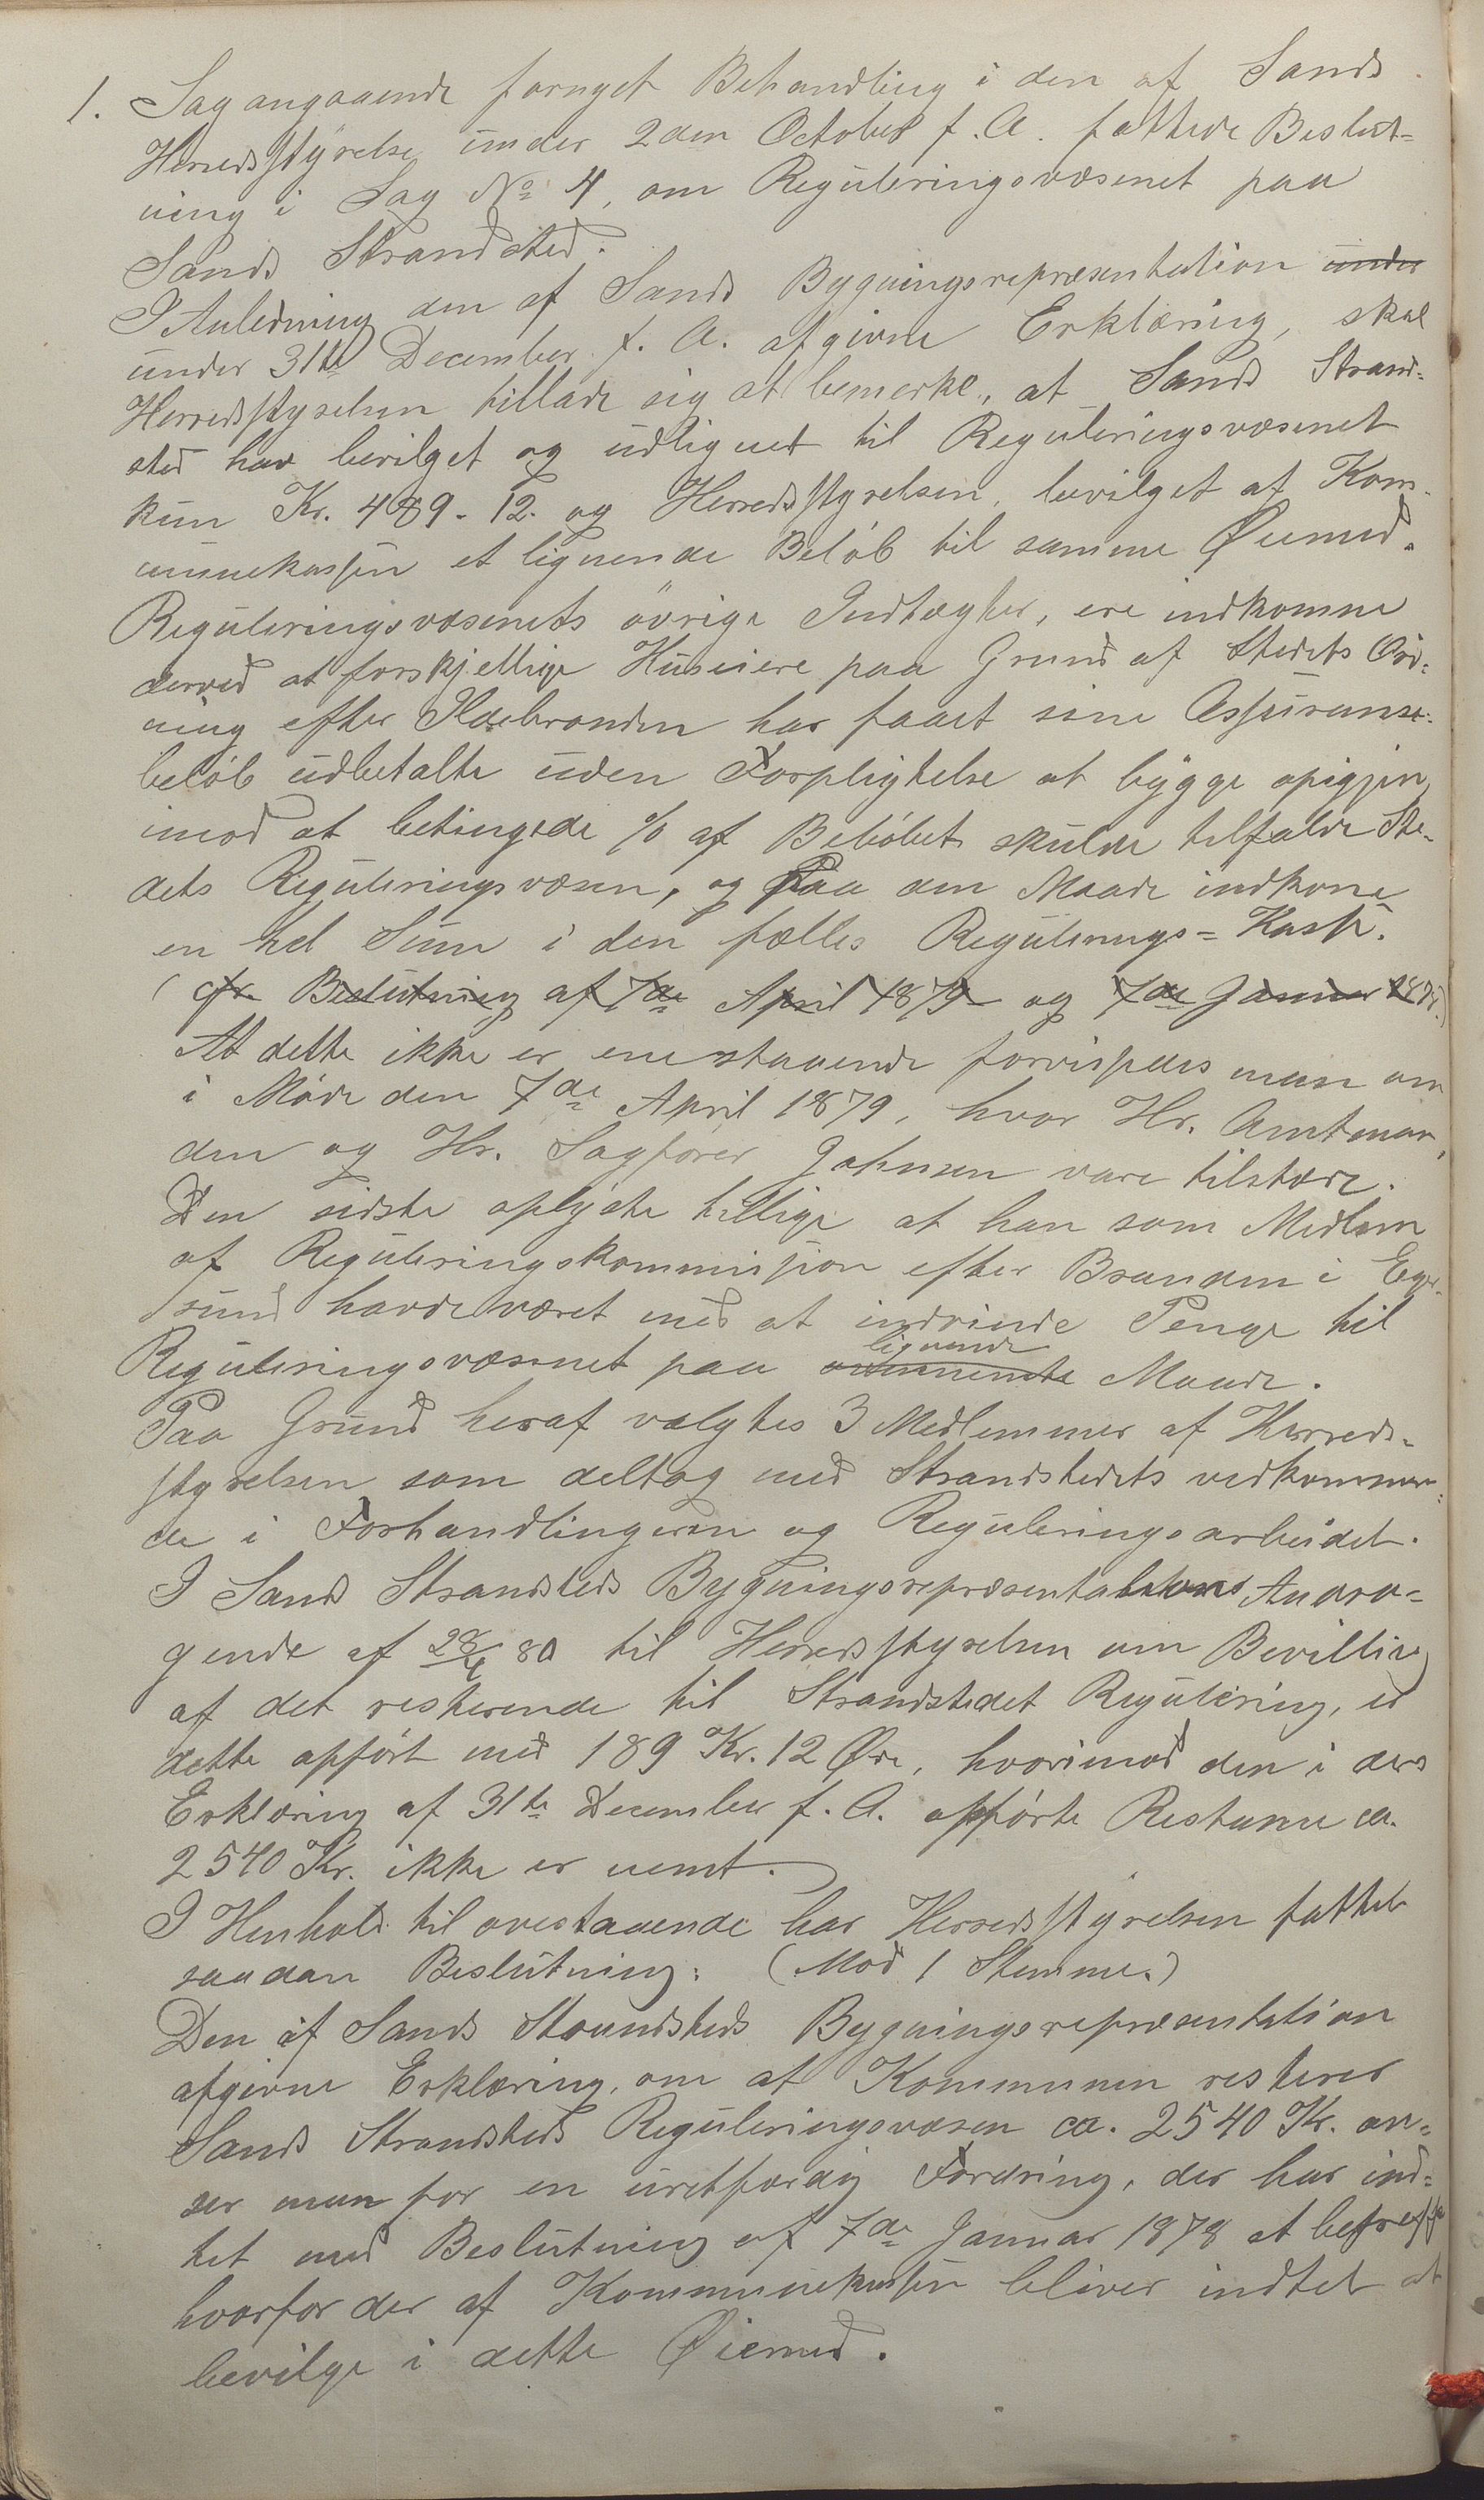 1. Sag angaaende fornyet Behandling i den af Sands
Herredsstyrelse under 2den October f. A. fattede Beslut-
ning i Sag No 4, om Reguleringsvæsenet paa
Sands Strandsted.
I Anledning den af Sands Bygningsrepræsentation under
under 31te December f. A. afgivne Erklæring, skal
Herredsstyrelsen tillade sig at bemerke, at Sands Strand-
sted har bevilget og udlignet til Reguleringsvæsenet
kun Kr. 489-12. og Herredsstyrelsen, bevilget af Kom-
munekassen et lignende Beløb til samme Øiemed.
Reguleringsvæsenets øvrige Indtægter, ere indkomne
derved at forskjellige Huseiere paa Grund af Stedets Ord-
ning efter Ildebranden har faaet sine Assuranse-
beløb udbetalte uden Forpligtelse at bygge opigjen,
imod at betingede % af Beløbet skulde tilfalde Ste-
dets Reguleringsvæsen, og Paa den Maade indkom
en hel Sum i den fælles Regulerings-Kasse.
(cfr. Beslutning af 7de April 1879 og 7de Januar 1878.)
At dette ikke er enestaaende forvissedes man om
i Møde den 7de April 1879, hvor Hr. Amtman-
den og Hr. Sagfører Johnsen vare tilstæde.
Den sidste oplyste tillige at han som Medlem
af Reguleringskommissjon efter Branden i Eger-
sund havde været med at inddrive Penge til
Reguleringsvæsenet paa lignende Maade.
Paa Grund heraf valgtes 3 Medlemmer af Herreds-
styrelsen som deltog med Strandstedets vedkommen-
de i Forhandlingerne og Reguleringsarbeidet.
I Sands Strandsteds Bygningsrepræsentations Andra-
gende af 28/4 80 til Herredsstyrelsen om Bevilling
af det resterende til Strandstedet Regulering, er
dette opført med 189 Kr. 12 Øre, hvorimod den i deres
Erklæring af 31te December f. A. opførte Restanse ca.
2540 Kr. ikke er nemt.
I Henhold til ovestaaende har Herredsstyrelsen fattet
saadan Beslutning: (Mod 1 Stemme.)
Den af Sands Strandsteds Bygningsrepræsentation
afgivne Erklæring, om at Kommunen resterer
Sands Strandsteds Reguleringsvæsen ca. 2540 Kr. an-
ser man for en uretfærdig Fordring, der har ind-
tet med Beslutning af 7de Januar 1878 at bestille
hvorfor der af Kommunekassen bliver indtet at
bevilge i dette Øiemed.